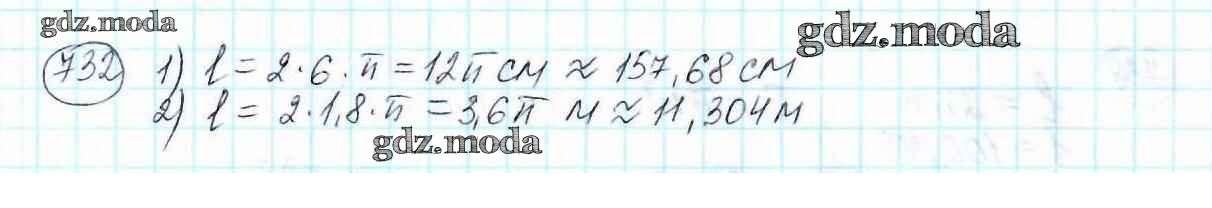 gdz.moda
gdz.moda
732 1) l = 2·6·π = 12π см ≈ 157,68 см
2) l = 2·1,8·π = 3,6π м ≈ 11,304 м
gdz.moda